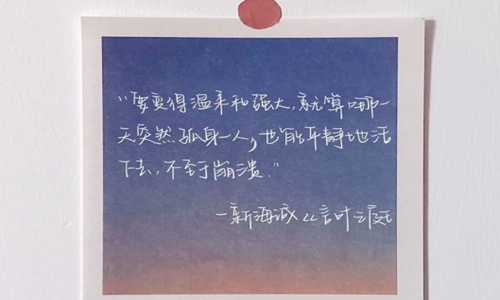 “要变得温柔和强大，就算哪一
天突然孤身一人，也能平静地活
下去，不至于崩溃。”
—新海诚《言叶之庭